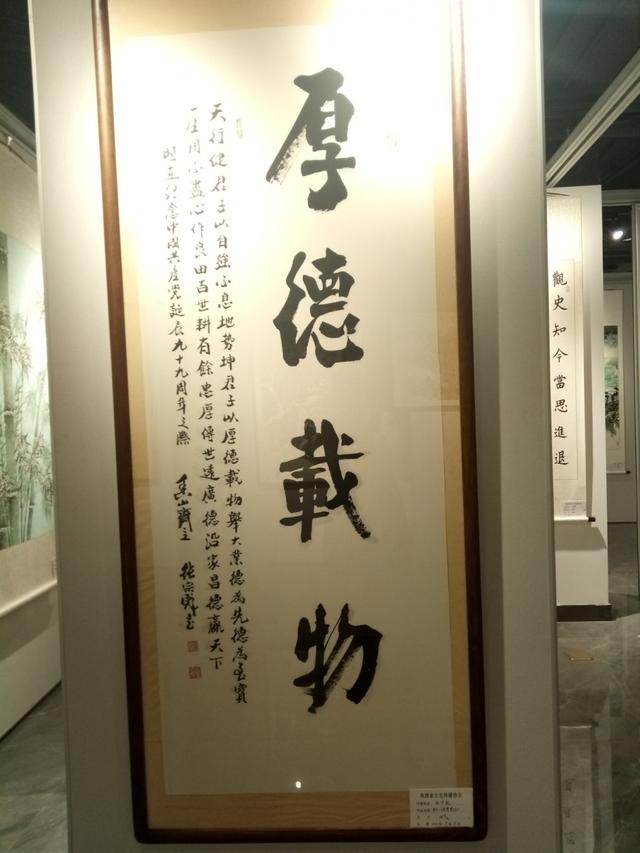 厚德載物
天行健君子以自強不息地勢坤君子以厚德載物舉大業德為先德為至寶
一生用心盡心作良田百世耕有餘忠厚傳世遠廣德沿家昌德贏天下
時值紀念中國共產党誕辰九十九周年之際
山齋主 張宗
觀史知今當思進退
陝西省文化傳播協會